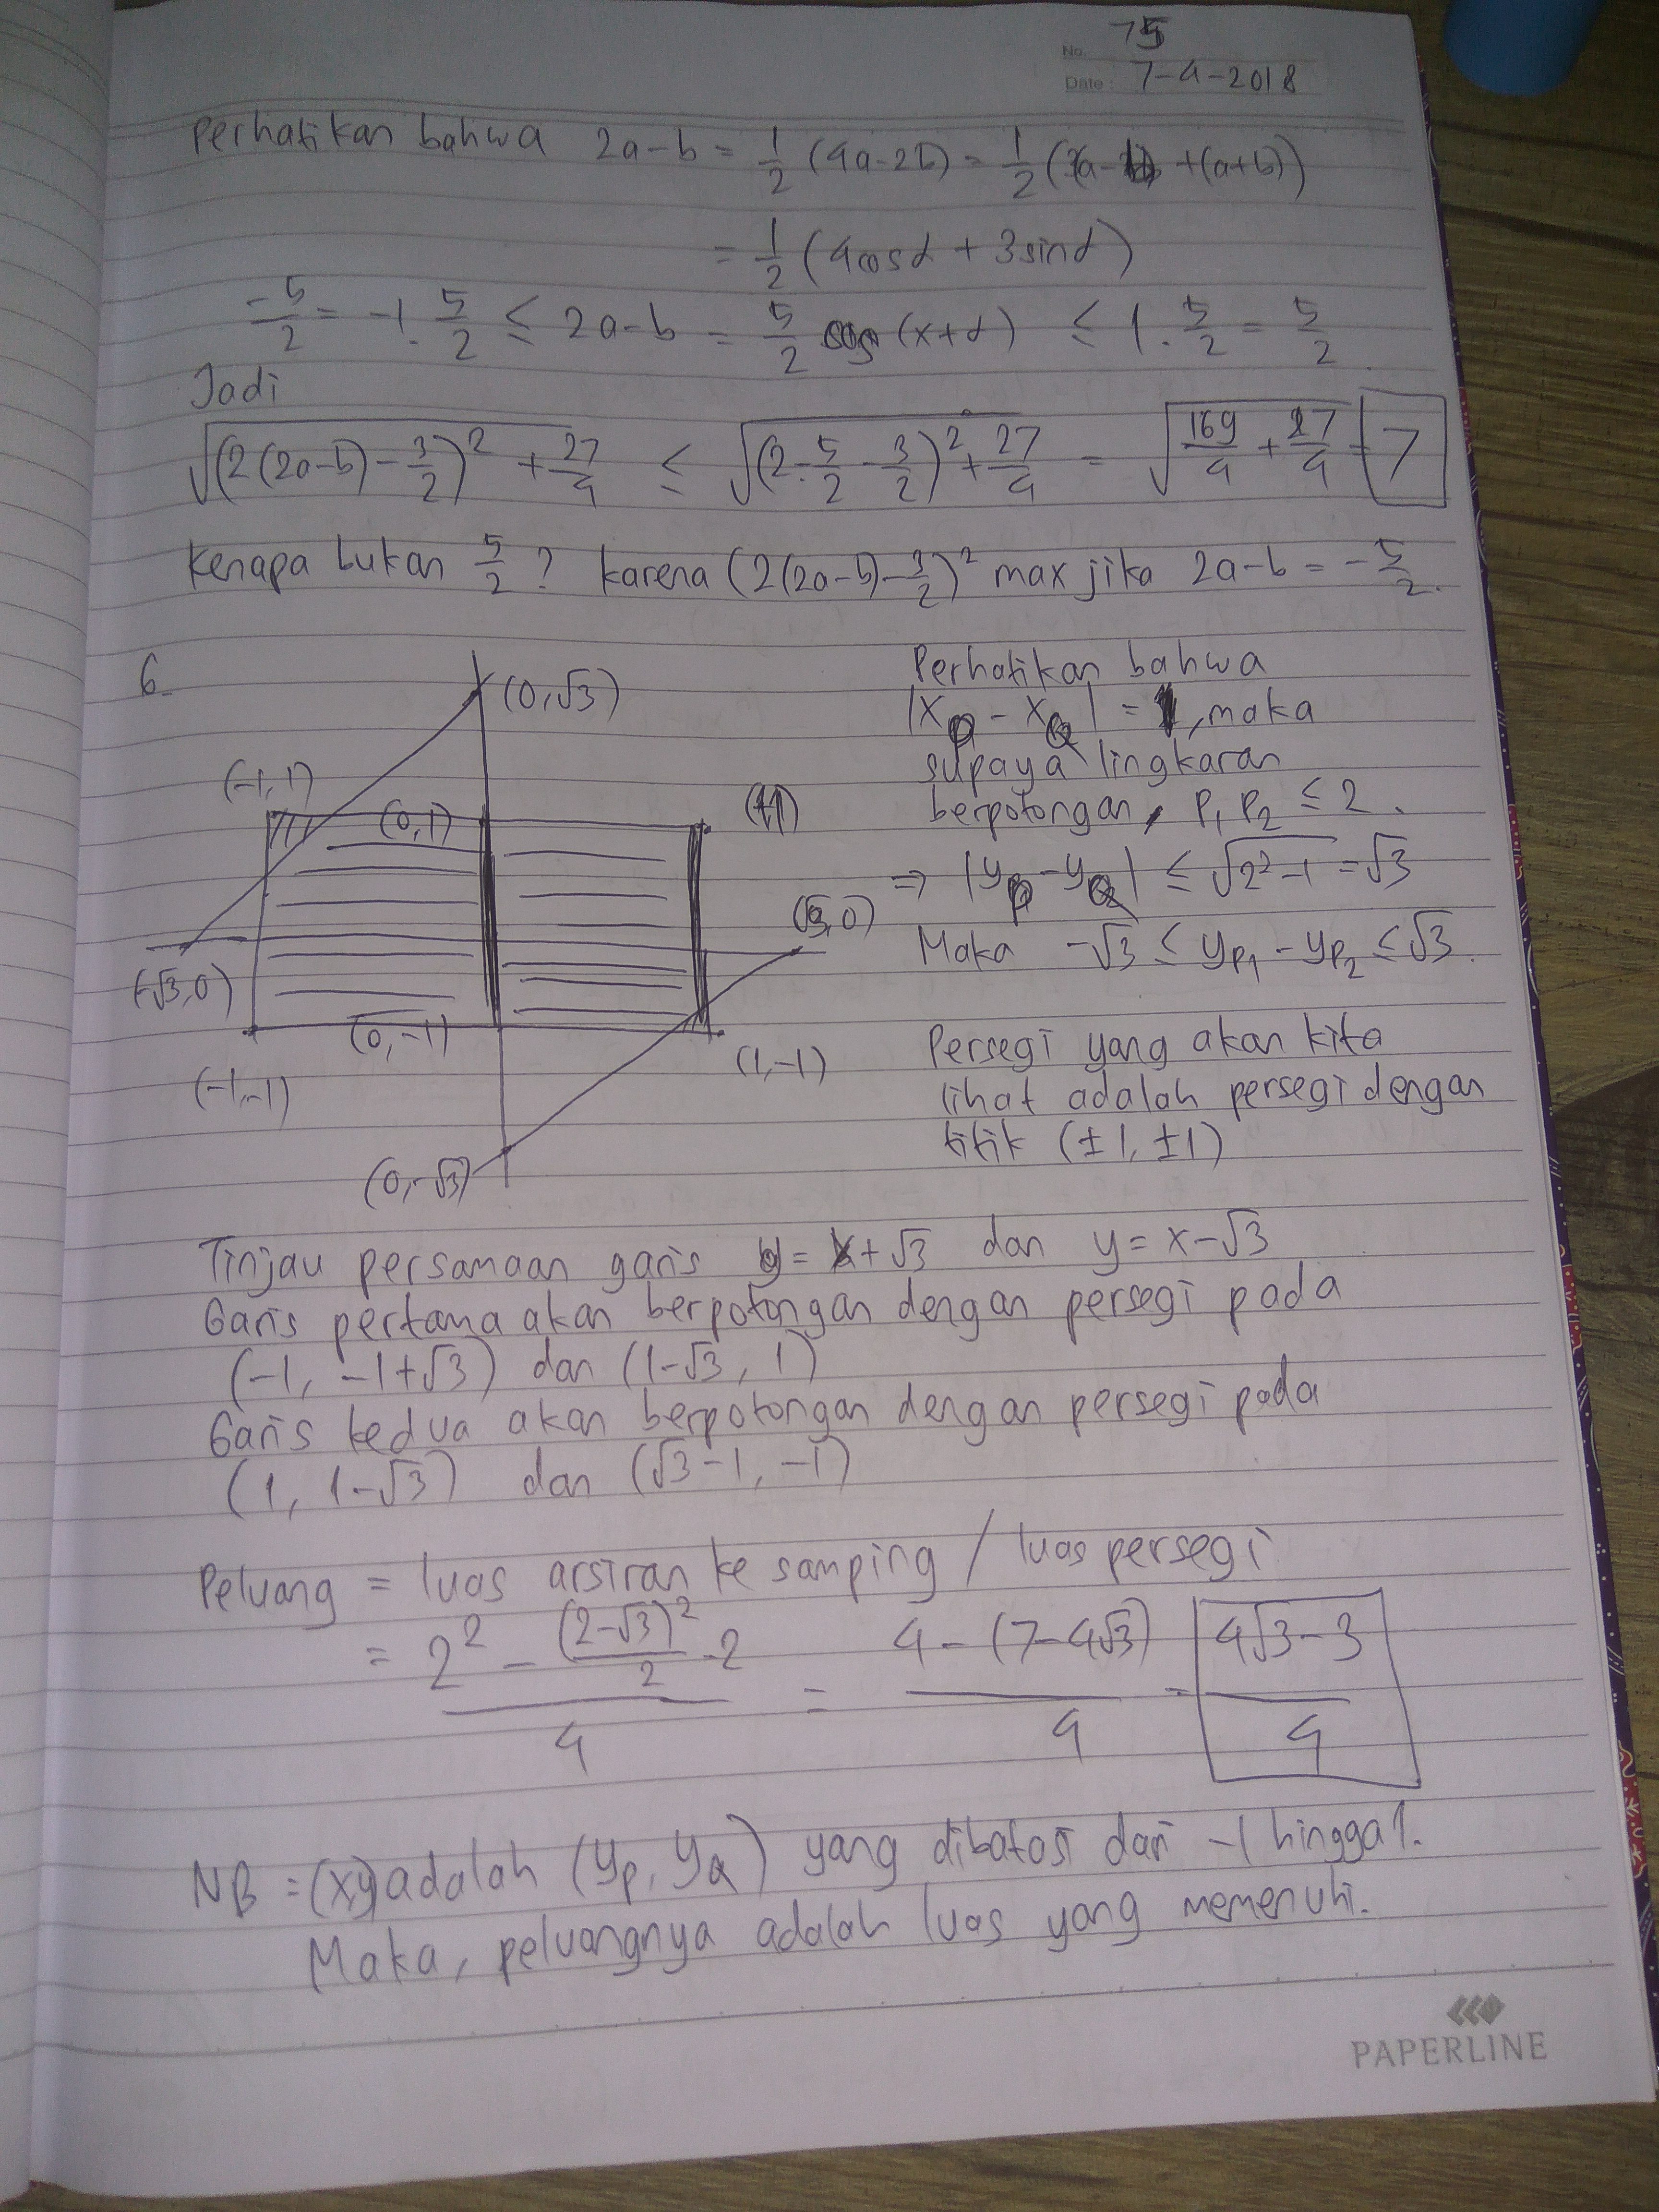 No. 75
Date : 7-4-2018
Perhatikan bahwa 2a-b = 1/2 (4a-2b) = 1/2 ( + (a+b))
= 1/2 (4cosα + 3sinα)
-5/2 = -1. 5/2 ≤ 2a-b = 5/2 (x+α) ≤ 1. 5/2 = 5/2.
Jadi
√((2(2a-b) - 3/2)² + 27/4) ≤ √((2.-5/2 - 3/2)² + 27/4) = √(169/4 + 27/4) = 7
Kenapa bukan 5/2 ? karena (2(2a-b)-3/2)² max jika 2a-b = -5/2.
6.
(0,√3)
(-1, 1)
(0,1)
(1,1)
(√3,0)
(-√3,0)
(0,-1)
(1,-1)
(-1,-1)
(0,-√3)
Perhatikan bahwa
|x_P - x_Q| = 1, maka
supaya lingkaran
berpotongan, P₁P₂ ≤ 2.
⇒ |y_P - y_Q| ≤ √(2²-1) = √3
Maka -√3 ≤ y_P₁ - y_P₂ ≤ √3.
Persegi yang akan kita
lihat adalah persegi dengan
titik (±1, ±1)
Tinjau persamaan garis y = x+√3 dan y = x-√3
Garis pertama akan berpotongan dengan persegi pada
(-1, -1+√3) dan (1-√3, 1)
Garis kedua akan berpotongan dengan persegi pada
(1, 1-√3) dan (√3-1, -1)
Peluang = luas arsiran ke samping / luas persegi
= (2² - (2-√3)²/2 .2)/4 = (4-(7-4√3))/4 = (4√3-3)/4
NB = (x,y) adalah (y_P, y_Q) yang dibatasi dari -1 hingga 1.
Maka, peluangnya adalah luas yang memenuhi.
PAPERLINE